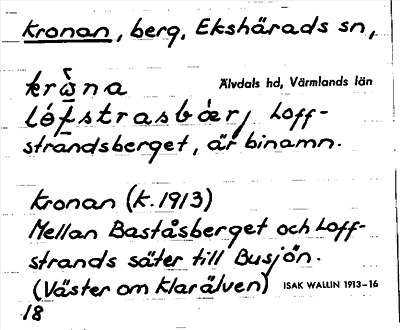 Kronan, berg, Ekshärads sn,
krὼna Älvdals hd, Värmlands län
Lófstrasbὰrj Loff-
strandsberget, är binamn.
Kronan (k. 1913)
Mellan Baståsberget och Loff-
strands säter till Busjön.
(Väster om Klarälven) ISAK WALLIN 1913–16
18